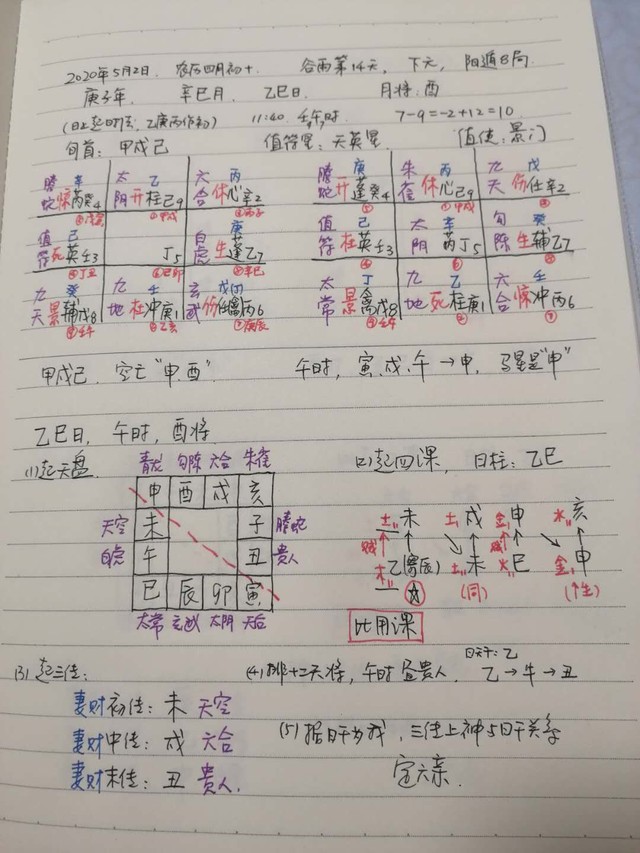 2020年5月2日. 农历四月初十. 谷雨第14天, 下元, 阳遁8局
庚子年. 辛巳月. 乙巳日. 月将:酉
(日上起时法,乙庚丙作初) 11:40. 壬午时. 7-9=-2+12=10.
旬首: 甲戌己 值符星: 天英星. 值使: 景门
螣 辛 太 乙 六 丙
蛇 惊芮癸4 阴 开柱己9 合 休心辛2
值 己 庚
符 死英壬3 丁5 白虎 生蓬乙7
九 癸 九 壬
天 景辅戊8 地 杜冲庚1 玄武 伤任丙6
螣 庚 朱 丙 九 戊
蛇 开蓬癸4 雀 休心己9 天 伤任辛2
值 己 太 辛 勾 癸
符 杜英壬3 阴 芮丁5 陈 生辅乙7
太 丁 九 乙 六 壬
常 景禽戊8 地 死柱庚1 合 惊冲丙6
甲戌己. 空亡"申.酉". 午时, 寅.戌.午→申, 马星是"申"
乙巳日, 午时, 酉将.
(1)起天盘. 青龙 勾陈 六合 朱雀 (2)起四课, 日柱: 乙巳
申 酉 戌 亥
天空 未 子 螣蛇
白虎 午 丑 贵人
巳 辰 卯 寅
太常 玄武 太阴 天后
土 未 土 戌 金 申 水 亥
贼 贼
木 乙(寄辰) 土 未 火 巳 金 申
(同) (个生)
比用课
(3)起三传: (4)排十二天将, 午时昼贵人. 日天干:乙
乙→牛→丑
妻财初传: 未 天空
妻财中传: 戌 六合 (5)据日干为我, 三传上神与日干关系
妻财末传: 丑 贵人. 定六亲.